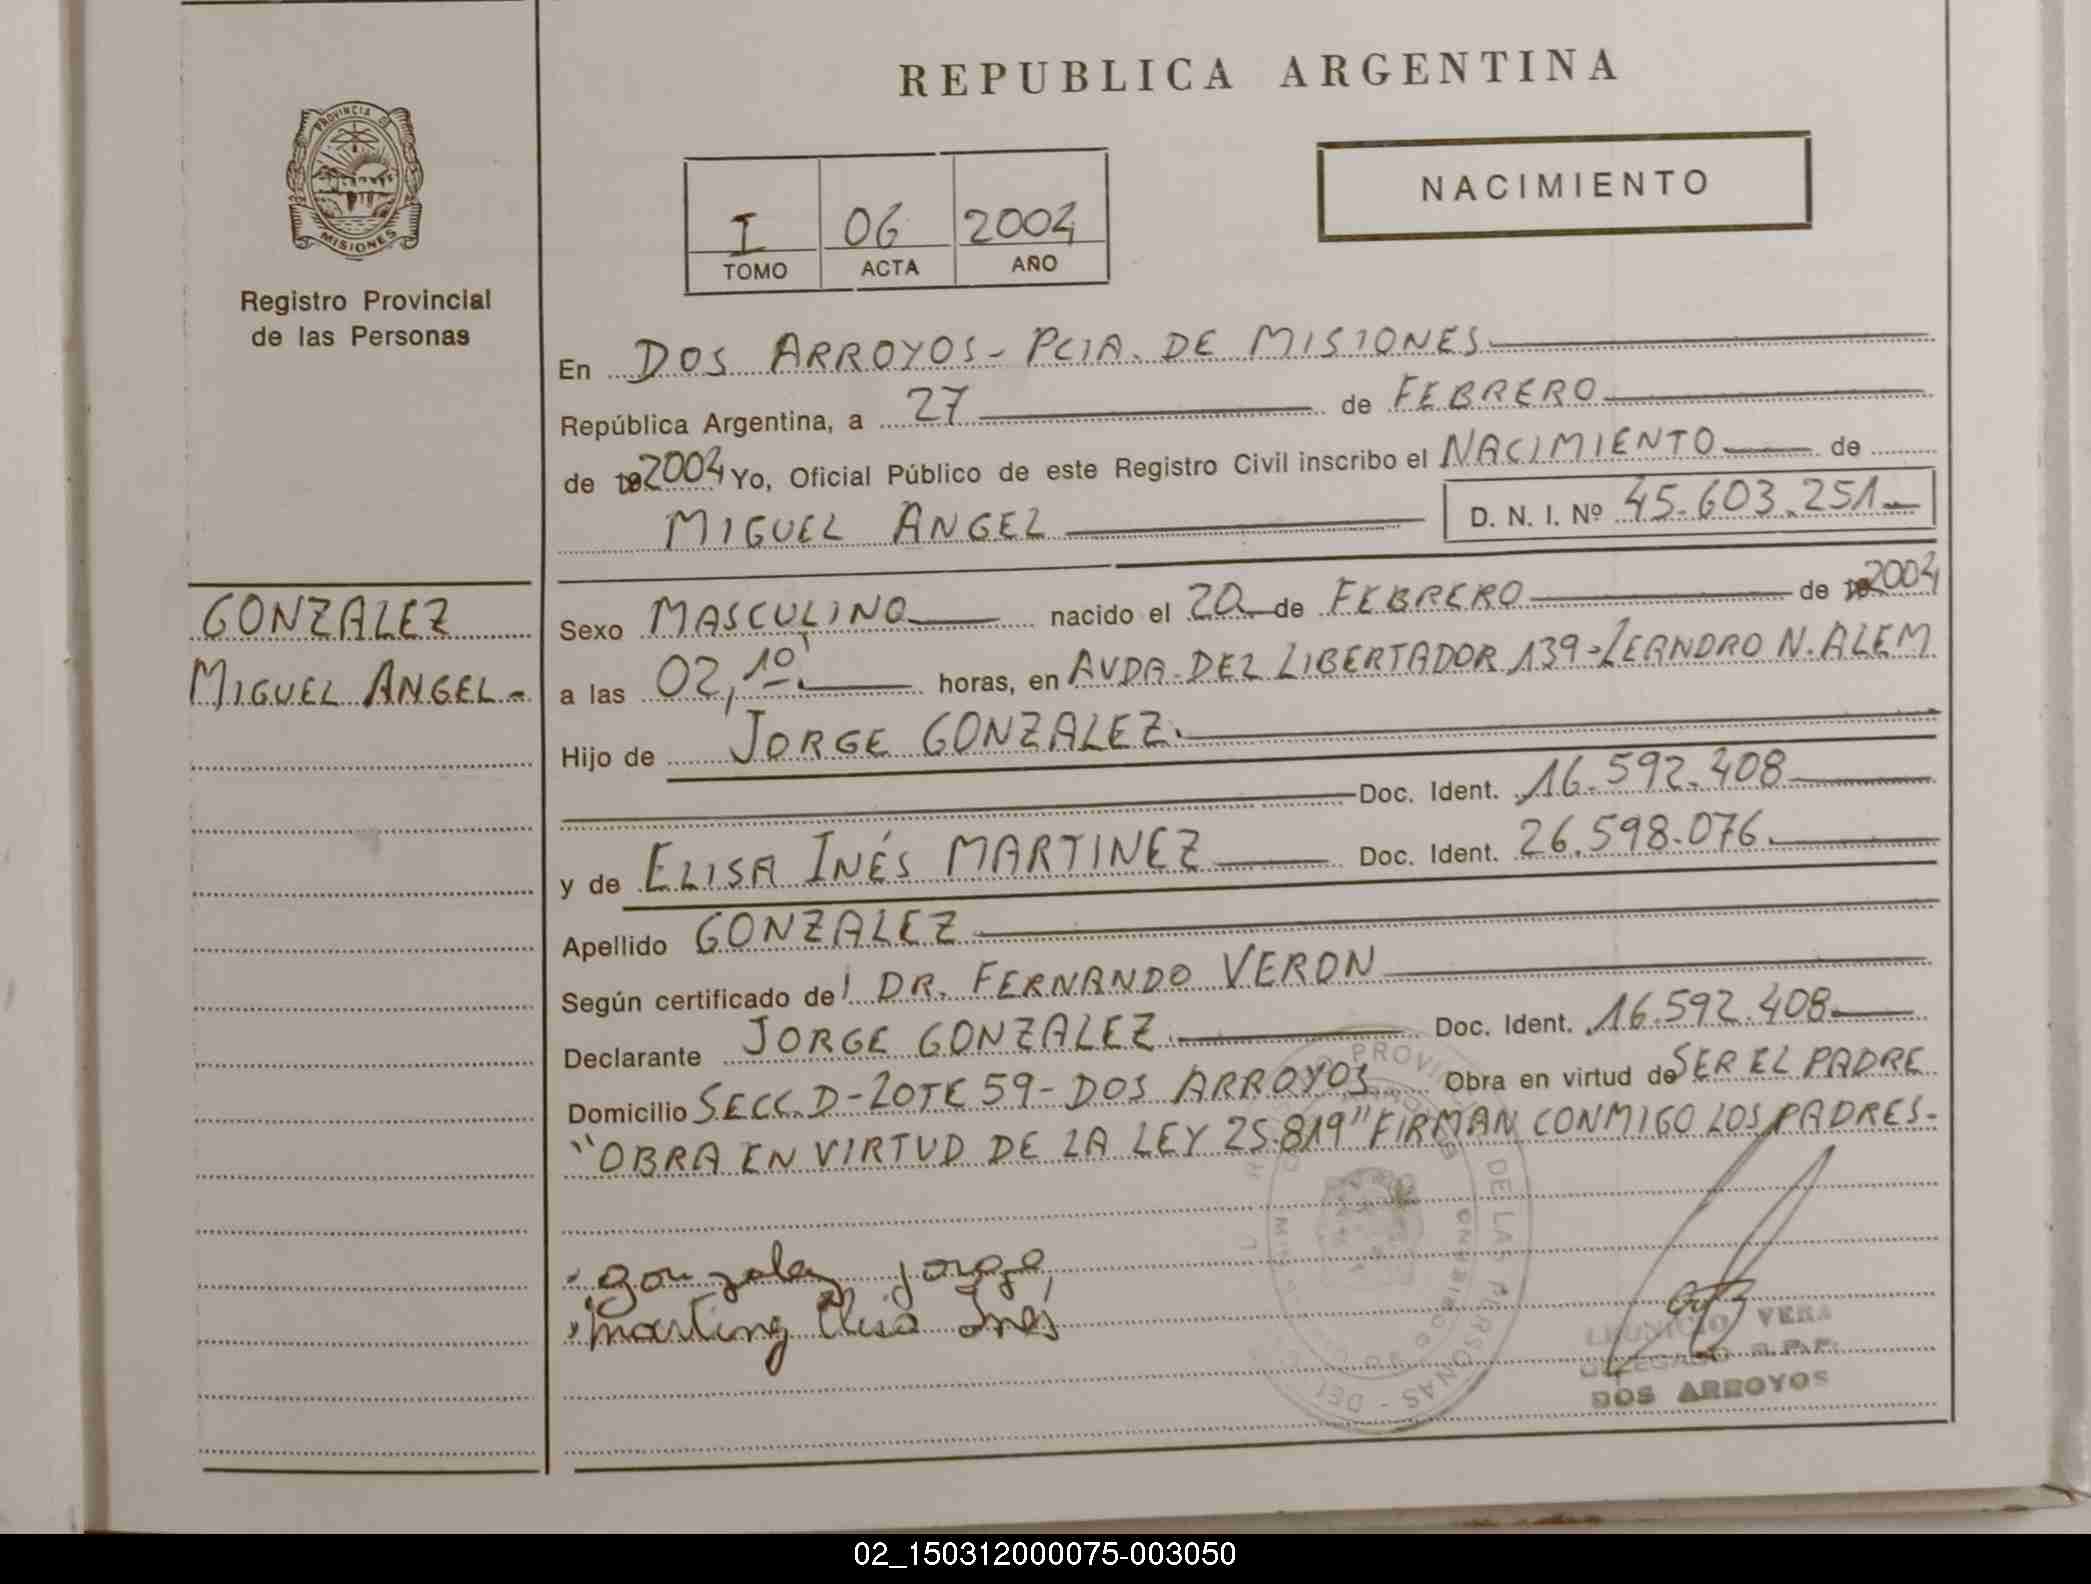 REPUBLICA ARGENTINA
PROVINCIA D
MISIONES
Registro Provincial
de las Personas
NACIMIENTO
I 06 2004
TOMO ACTA AÑO
En DOS ARROYOS - PCIA. DE MISIONES
República Argentina, a 27 de FEBRERO
de 2004 Yo, Oficial Público de este Registro Civil inscribo el NACIMIENTO de
MIGUEL ANGEL D. N. I. Nº 45.603.251
GONZALEZ
MIGUEL ANGEL -
Sexo MASCULINO nacido el 20 de FEBRERO de 2004
a las 02,10' horas, en AVDA. DEL LIBERTADOR 139 - LEANDRO N. ALEM
Hijo de JORGE GONZALEZ.
Doc. Ident. 16.592.408
y de ELISA INÉS MARTINEZ Doc. Ident. 26.598.076.
Apellido GONZALEZ
Según certificado del DR. FERNANDO VERON
Declarante JORGE GONZALEZ. Doc. Ident. 16.592.408
Domicilio SECC. D - LOTE 59 - DOS ARROYOS Obra en virtud de SER EL PADRE
"OBRA EN VIRTUD DE LA LEY 25.819" FIRMAN CONMIGO LOS PADRES -
gonzalez jorge
martinez Elisa Inés
DE LAS PERSONAS - DEL
VERA
DELEGADO R.P.P.
DOS ARROYOS
02_150312000075-003050